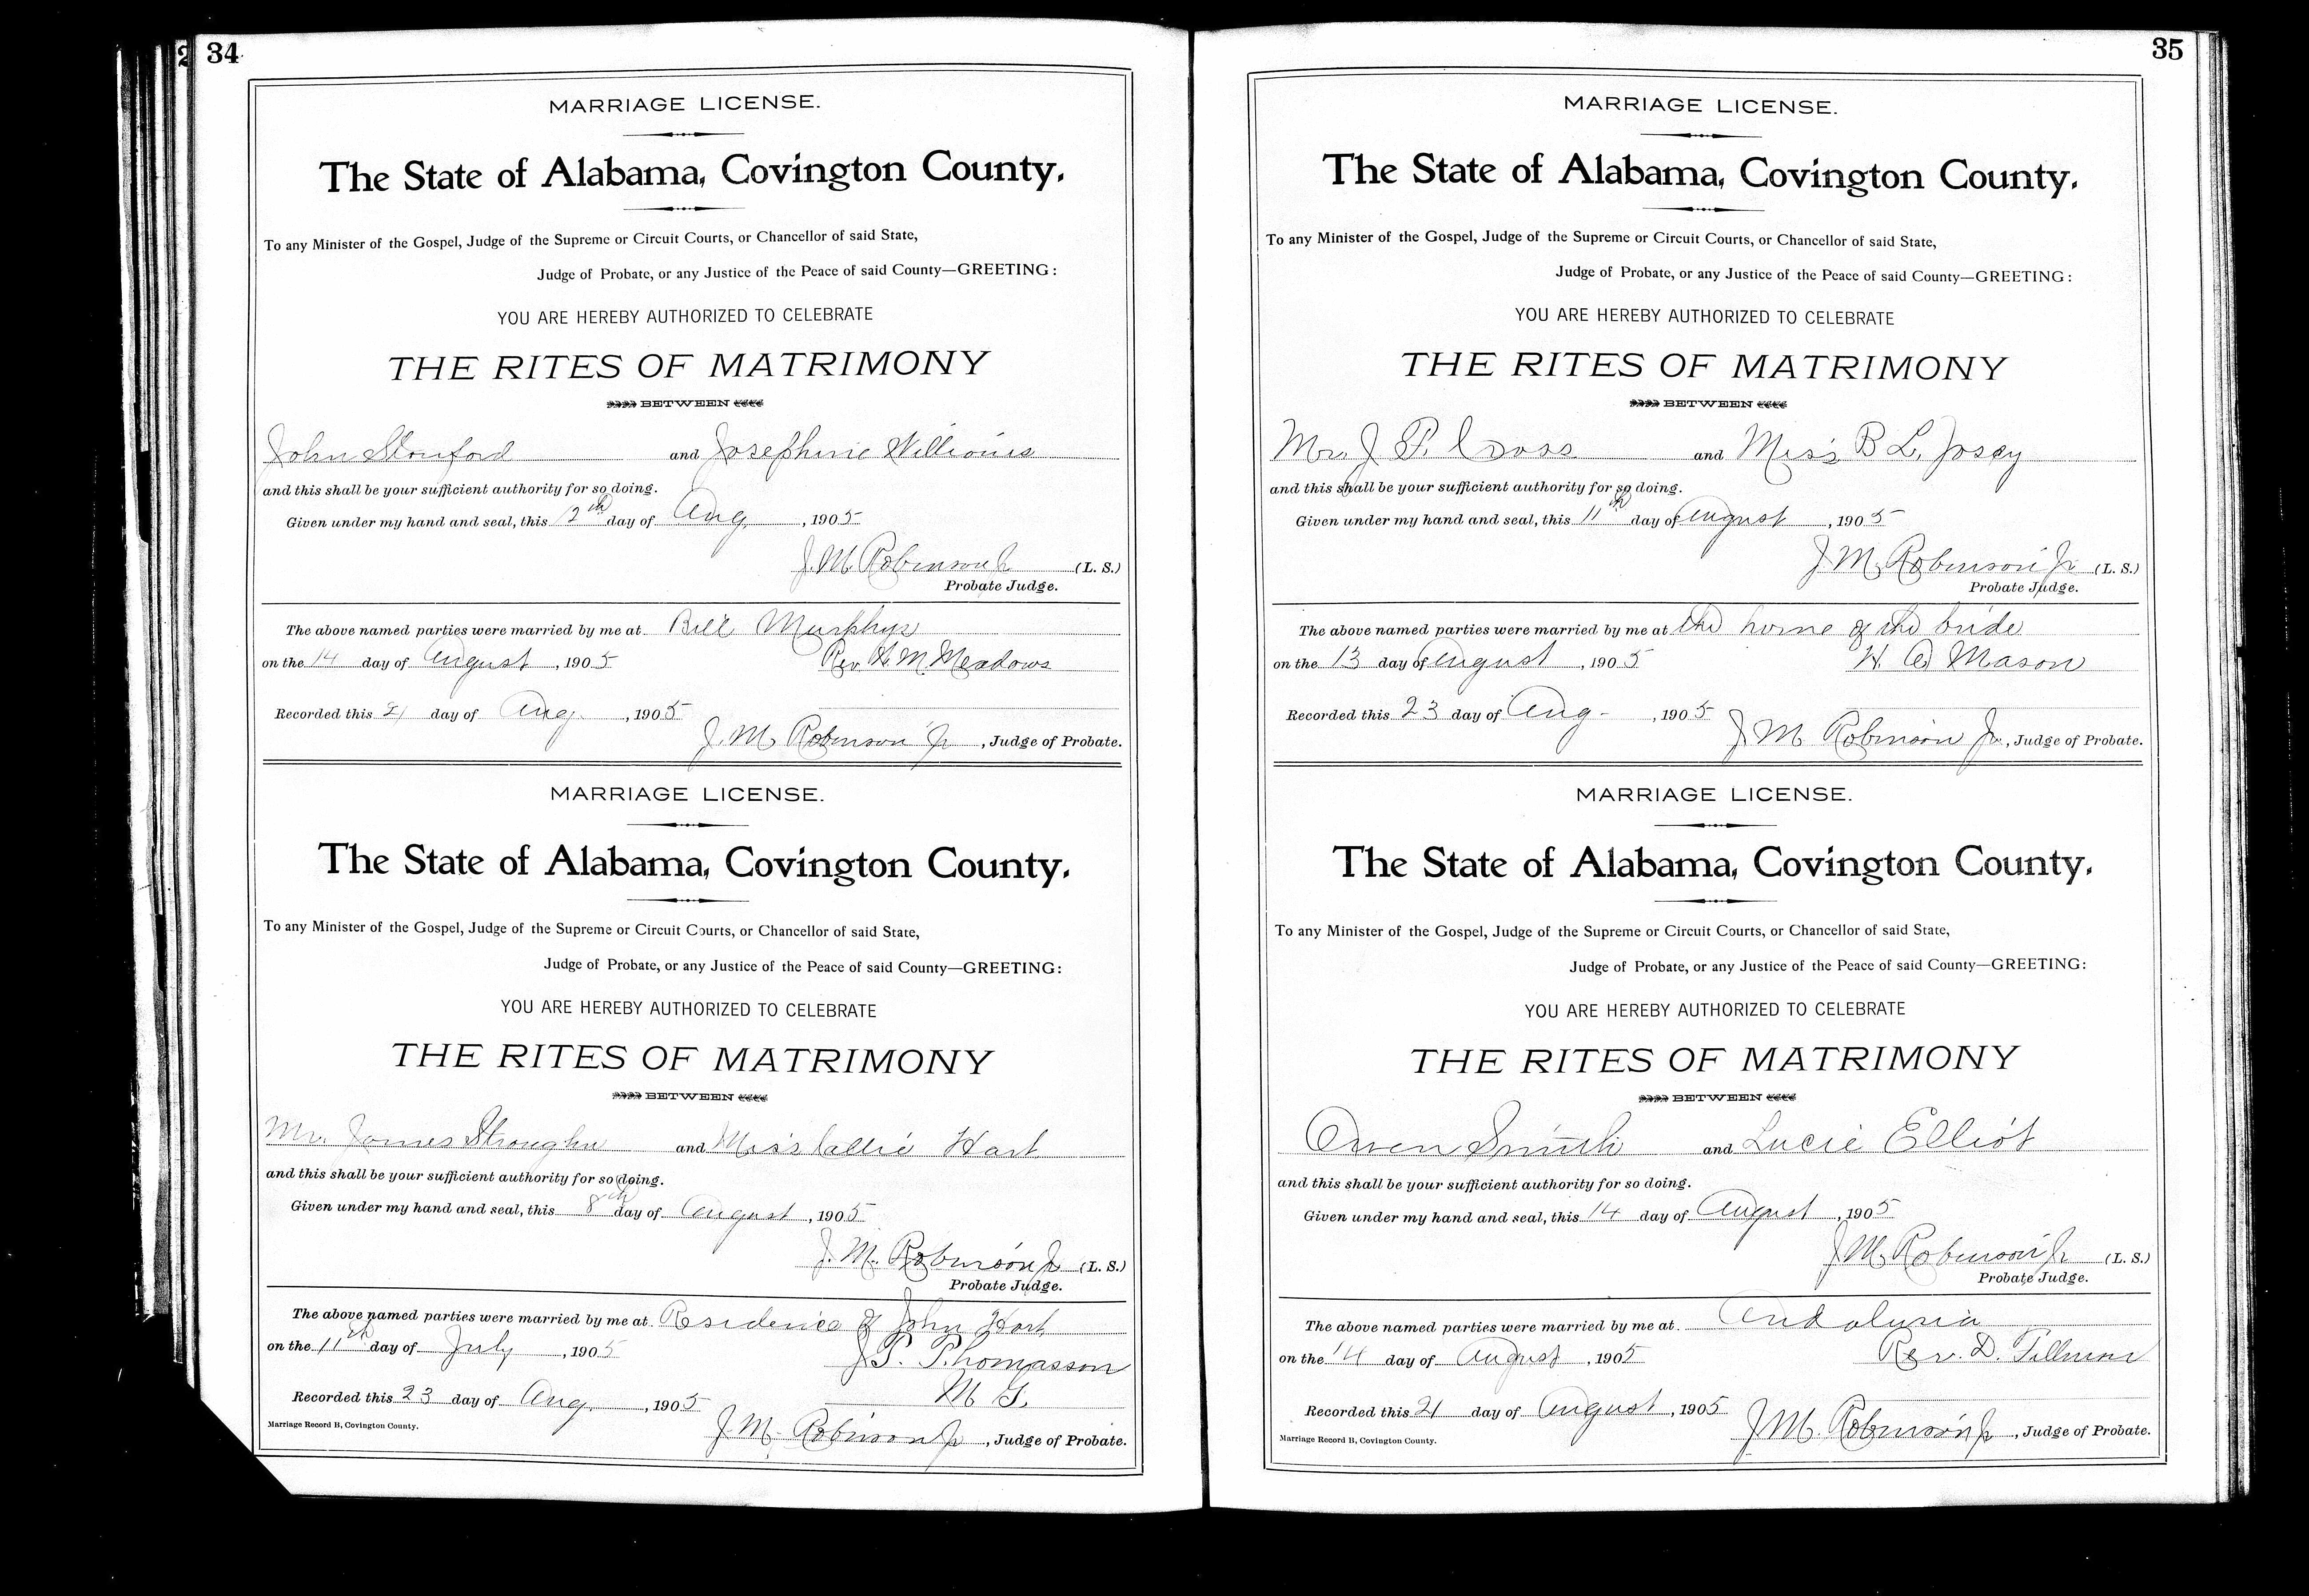 34
MARRIAGE LICENSE.
The State of Alabama, Covington County.
To any Minister of the Gospel, Judge of the Supreme or Circuit Courts, or Chancellor of said State,
Judge of Probate, or any Justice of the Peace of said County—GREETING:
YOU ARE HEREBY AUTHORIZED TO CELEBRATE
THE RITES OF MATRIMONY
BETWEEN
John Stanford and Josephine Williams
and this shall be your sufficient authority for so doing.
Given under my hand and seal, this 12th day of Aug, 1905
J. M. Robinson Jr (L. S.)
Probate Judge.
The above named parties were married by me at Bill Murphys
on the 14 day of August, 1905 Rev. H. M. Meadows
Recorded this 21 day of Aug., 1905
J. M. Robinson Jr, Judge of Probate.
MARRIAGE LICENSE.
The State of Alabama, Covington County.
To any Minister of the Gospel, Judge of the Supreme or Circuit Courts, or Chancellor of said State,
Judge of Probate, or any Justice of the Peace of said County—GREETING:
YOU ARE HEREBY AUTHORIZED TO CELEBRATE
THE RITES OF MATRIMONY
BETWEEN
Mr. James Straughn and Miss Callie Hart
and this shall be your sufficient authority for so doing.
Given under my hand and seal, this 8th day of August, 1905
J. M. Robinson Jr (L. S.)
Probate Judge.
The above named parties were married by me at Residence of John Hart
on the 11th day of July, 1905 J. P. Thomasson
M G.
Recorded this 23 day of Aug., 1905
J. M. Robinson Jr, Judge of Probate.
Marriage Record B, Covington County.
35
MARRIAGE LICENSE.
The State of Alabama, Covington County.
To any Minister of the Gospel, Judge of the Supreme or Circuit Courts, or Chancellor of said State,
Judge of Probate, or any Justice of the Peace of said County—GREETING:
YOU ARE HEREBY AUTHORIZED TO CELEBRATE
THE RITES OF MATRIMONY
BETWEEN
Mr. J. P. Cross and Miss B L. Josey
and this shall be your sufficient authority for so doing.
Given under my hand and seal, this 11th day of August, 1905
J. M. Robinson Jr (L. S.)
Probate Judge.
The above named parties were married by me at the home of the bride
on the 13 day of August, 1905 H. A. Mason
Recorded this 23 day of Aug-, 1905
J. M Robinson Jr., Judge of Probate.
MARRIAGE LICENSE.
The State of Alabama, Covington County.
To any Minister of the Gospel, Judge of the Supreme or Circuit Courts, or Chancellor of said State,
Judge of Probate, or any Justice of the Peace of said County—GREETING:
YOU ARE HEREBY AUTHORIZED TO CELEBRATE
THE RITES OF MATRIMONY
BETWEEN
Owen Smith and Lucie Elliot
and this shall be your sufficient authority for so doing.
Given under my hand and seal, this 14 day of August, 1905
J. M. Robinson Jr (L. S.)
Probate Judge.
The above named parties were married by me at Andalusia
on the 14 day of August, 1905 Rev. D. Tillman
Recorded this 21 day of August, 1905
J. M. Robinson Jr, Judge of Probate.
Marriage Record B, Covington County.